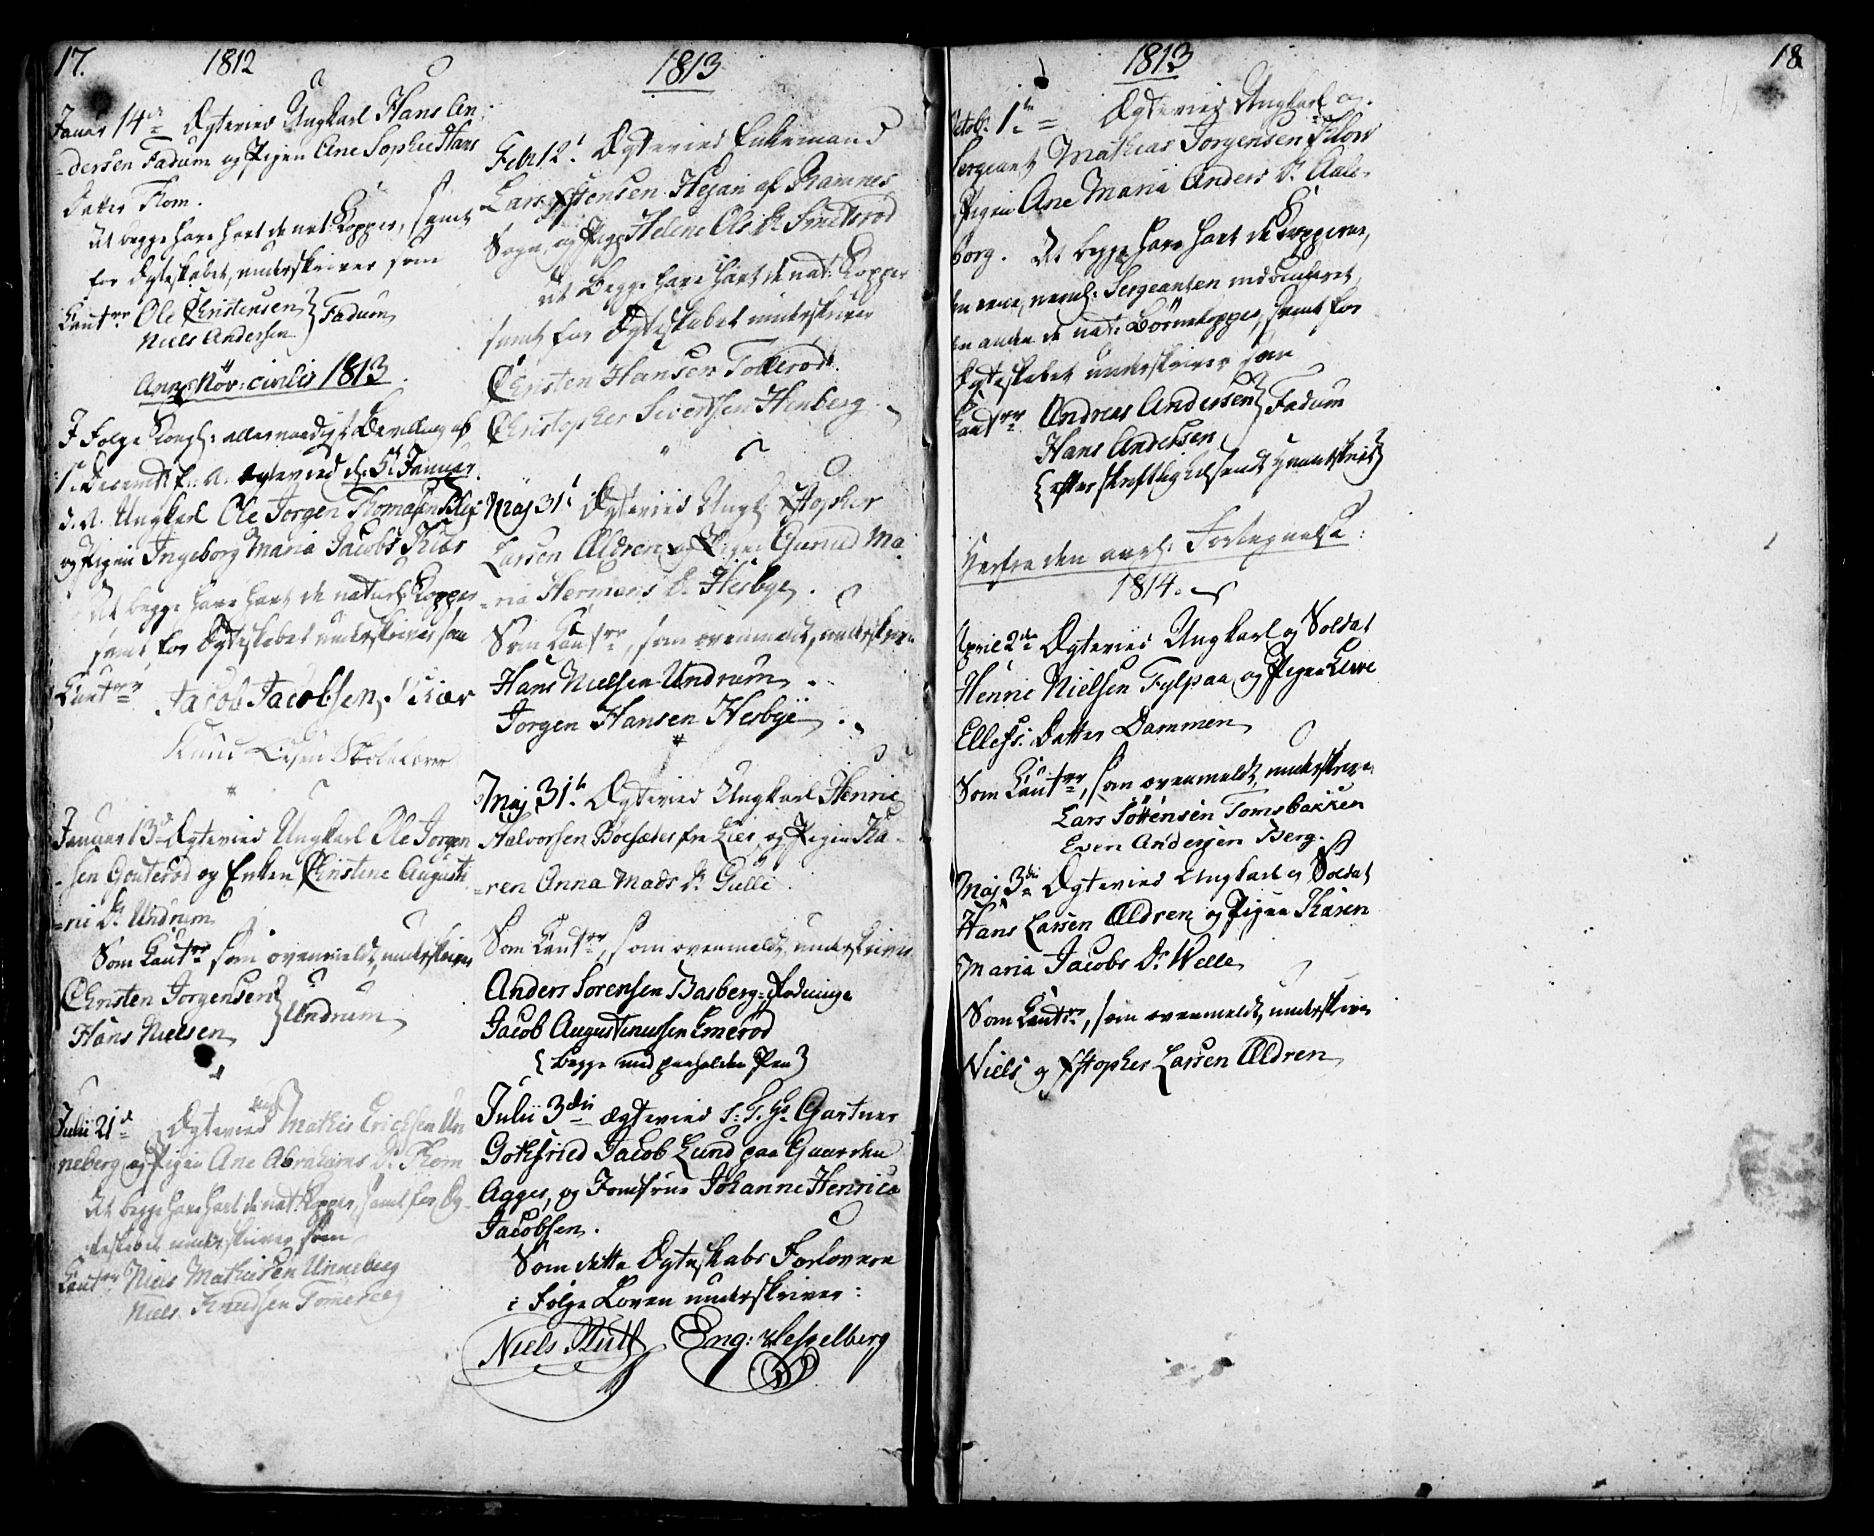 17.
1812
Januar 14de Ægteviet Ungkarl Hans An:
-dersen Fadum og Pigen Ane Sophie Hans
Datter Thom.
At begge have havt de nat: Kopper, samt
for Ægteskabet, underskriver som
Caut:rr Ole Christensen } Fadum
Niels Andersen
Anno Nov: civilis 1813
I Følge Kongl: allernaadigst Bevilling af
1ste Decembr f: A: Ægteviet d. Januar
d. A. Ungkarl Ole Jorgen Thomasen
og Pigen Ingeborg Maria Jacobs Kiær
At begge have havt de naturl: Kopper
samt for Ægteskabet underskriver som
Caut:rr Jacob Jacobsen, Kiær
Knud Olsen
Januar 13de Ægteviet Ungkarl Ole Jorgen
-sen Gouterod og Enken Christine Augusti
-ni Dr Undrum
Som Caut:rr, som ovenmeldt, underskriver
Christen Jorgensen } Undrum
Hans Nielsen
Julii 21de Ægteviet Mathis Erichsen Un
neberg og Pigen Ane Abrahams Dr Thom
At begge have havt de nat: Kopper, samt for Æg-
teskabet underskriver som
Caut:rr Niels Mathisen Unneberg
Niels Knudsen
1813
Febr 12t Ægteviet Enkemand
Lars Hejan af Ramnes
Sogn, og Pige Helene Ols Dr Smiterod
At Begge have havt de nat: Kopper
samt for Ægteskabet underskriver
Christen Hansen Tollerod.
Christopher Sivertsen Henberg
Maj 31t Ægteviet Ungk: Xstopher
Larsen Ældren og Pigen Gunild Ma
-ria Hermans Dr Hesbye.
Som Caut:rr, som ovenmeldt, underskriver
Hans Nielsen Undrum.
Jorgen Hansen Hesbye.
Maj 31t Ægteviet Ungkarl Henric
Halvorsen fra Lier, og Pigen Ka-
-ren Anna Mads Dr Gulli
Som Caut:rr, som ovenmeldt, underskriver
Anders Sorensen Basberg
Jacob Augustinussen Emerod
{ begge med paaholden Pen }
Julii 3die Ægteviet S: T. Hr Gartner
Gothfried Jacob Lund paa Gaarden
Agger, og Jomfrue Johanne Henrica
Jacobsen.
Som dette Ægteskabs Forlovere
i Følge Loven underskriver:
Niels Eng:
1813
18
Octob: 1te Ægteviet Ungkarl og
Sergeant Mathias Jorgensen
Pigen Ane Maria Anders Dr Aale-
borg. At begge have havt de Kopperne,
en ene, nemlig Sergeanten inoculeret,
en anden de nat: Børnekopper, samt for
Ægteskabet underskriver som
Caut:rr Andreas Andersen } Fadum
Hans Andersen
{ efter skriftlig
Herfra den aarl: Fortegnelse:
1814.
April 2den Ægteviet Ungkarl og Soldat
Henric Nielsen Fylpaa og Pigen Live
Ellefs: Datter Dammen
Som Caut:rr, som ovenmeldt, underskriver
Lars Sørensen Tomsbakken
Even Andersen Berg.
Maj 3die Ægteviet Ungkarl og Soldat
Hans Larsen Ældren og Pigen Karen
Maria Jacobs Dr Welle
Som Caut:rr, som ovenmeldt, underskriver
Niels og Xstopher Larsen Ældren